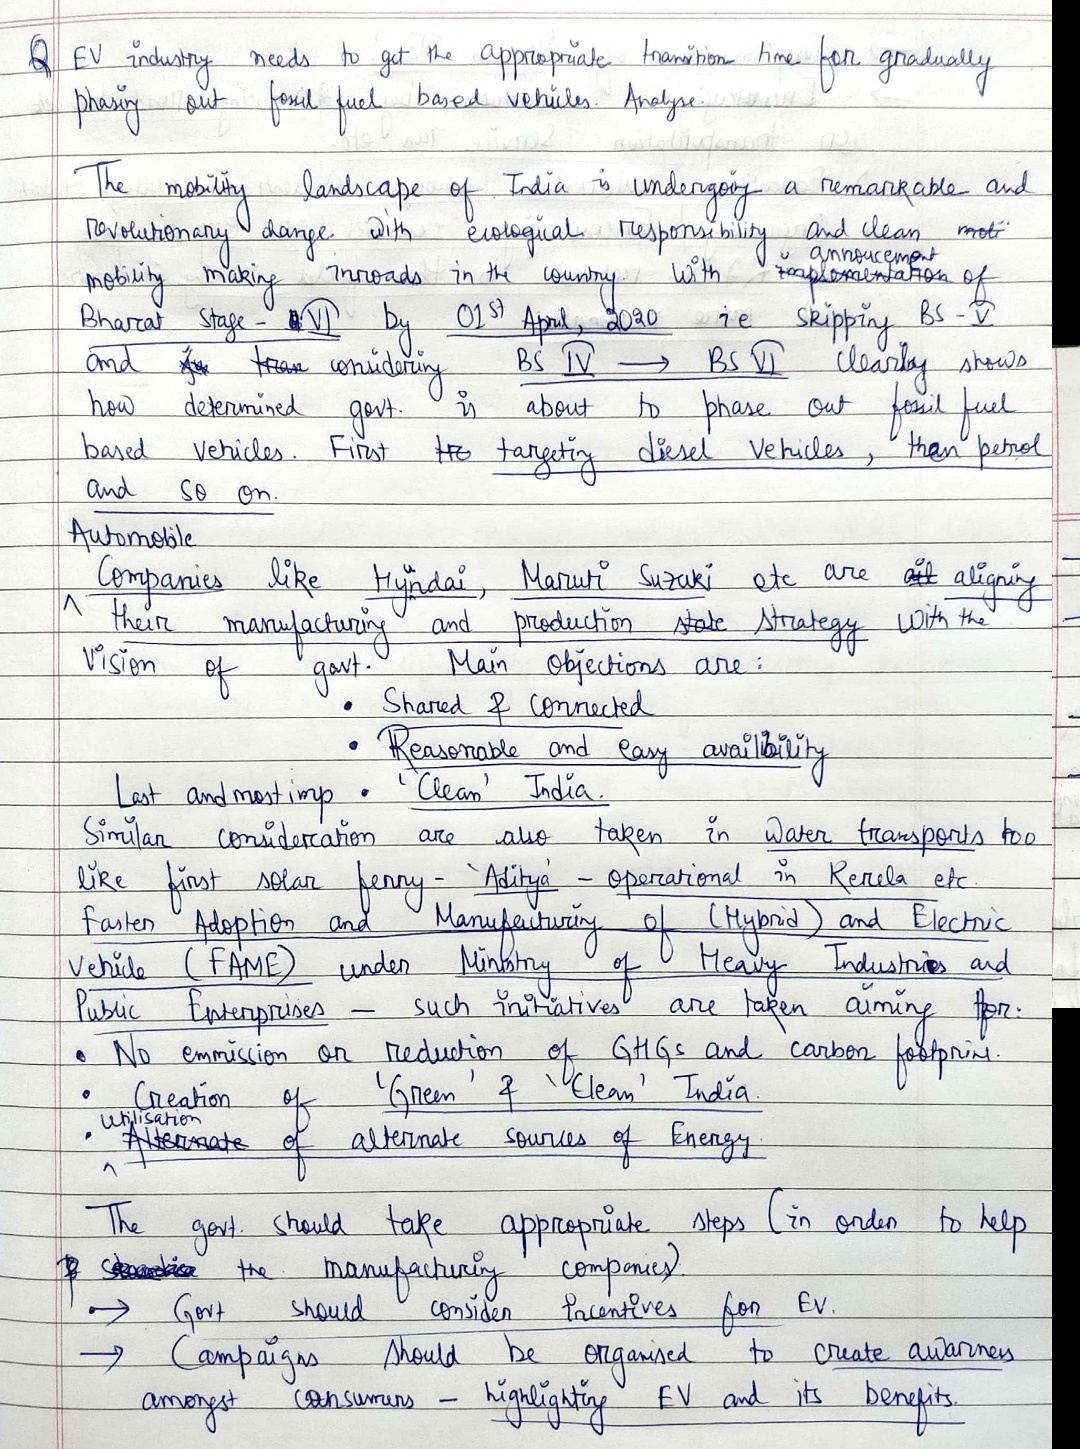 Q EV industry needs to get the appropriate transition time for gradually
phasing out fossil fuel based vehicles. Analyse.
The mobility landscape of India is undergoing a remarkable and
revolutionary change with ecological responsibility and clean
mobility making inroads in the country with announcement of
Bharat Stage - VI by 01st April, 2020 ie skipping BS - V
and considering BS IV → BS VI clearlay shows
how determined govt. is about to phase out fossil fuel
based vehicles. First targeting diesel vehicles, then petrol
and so on.
Automobile
Companies like Hyndai, Maruti Suzuki etc are aligning
their manufacturing and production strategy with the
vision of govt. Main objections are:
• Shared & connected
• Reasonable and easy availibility
Last and most imp • 'Clean' India.
Similar consideration are also taken in water transports too
like first solar ferry - 'Aditya' - operational in Kerela etc.
Faster Adoption and Manufacturing of (Hybrid) and Electric
Vehicle (FAME) under Ministry of Heavy Industries and
Public Enterprises — such initiatives are taken aiming for:
• No emmission or reduction of GHGs and carbon footprint.
• Creation of 'Green' & 'Clean' India.
• Utilisation of alternate sources of Energy.
The govt. should take appropriate steps (in order to help
the manufacturing companies).
→ Govt should consider incentives for EV.
→ Campaigns should be organised to create awarness
amongst consumers – highlighting EV and its benefits.